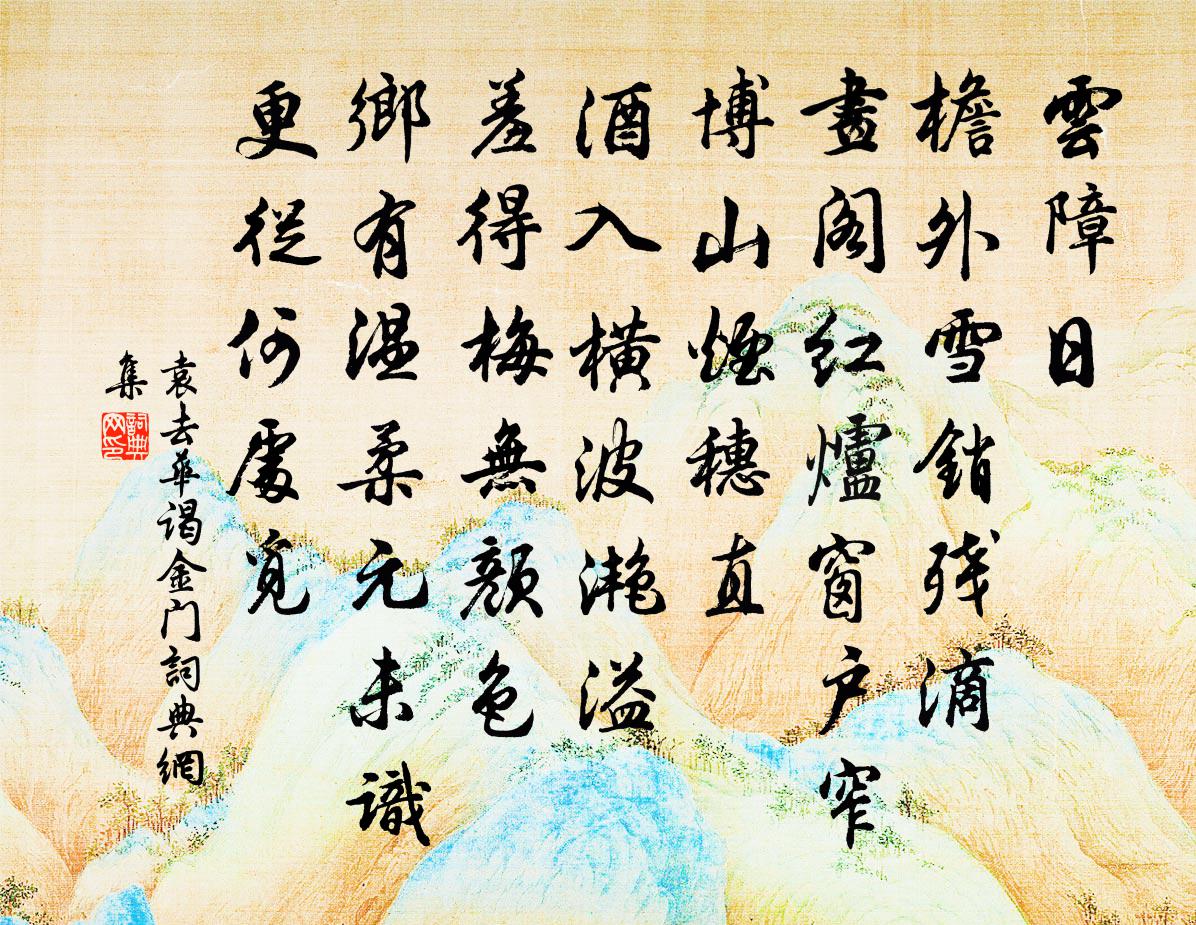 雲障日
檐外雪銷残滴
畫閣紅爐窗戶窄
博山煙穗直
酒入橫波灩溢
羞得梅無顏色
鄉有温柔元未識
更從何處覓
袁去華谒金门詞典網
集
詞典网印